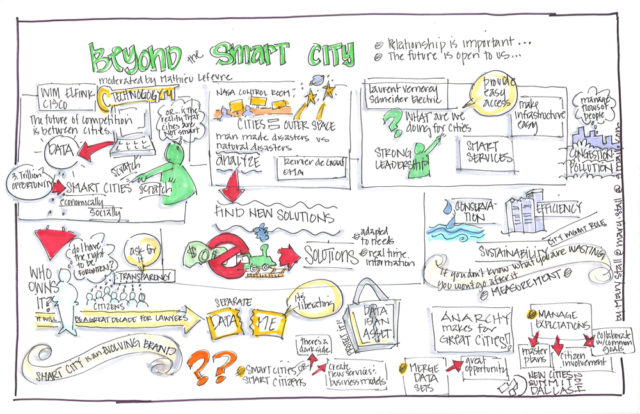 Beyond the Smart City
moderated by Mathieu Lefevre
@ Relationship is important...
@ The future is open to us...
WIM ELFRINK
CISCO
TECHNOLOGY
The future of competition
is between cities.
OR... is the
reality that
cities are
not smart
DATA
3 Trillion
opportunity
SMART CITIES
scratch
scratch
economically
socially
NASA CONTROL ROOM
CITIES = OUTER SPACE
man made disasters vs
natural disasters
ANALYZE
FIND NEW SOLUTIONS
Laurent Vernerey
Schneider Electric
provide
easy
access
? WHAT are we
doing for cities
make
infrastructure
easy
STRONG
LEADERSHIP
SMART
SERVICES
manage
flows of
people
CONGESTION
POLLUTION
WHO
OWNS
IT?
do I have
the right
to be
forgotten?
ask for
it
TRANSPARENCY
CITIZENS
It will B a great decade for LAWYERS
SMART CITY is an EVOLVING BRAND?
SOLUTIONS
@ adapted
to needs
@ real time
information
CONSERVATION
EFFICIENCY
SUSTAINABILITY
CITY MGMT ROLE
If you don't know what you are WASTING
you won't go after it
@ MEASUREMENT @
SEPARATE
DATA
ME
It's
liberating
DATA
IS AN
ASSET
ANARCHY
makes for
GREAT CITIES!!
MANAGE
EXPECTATIONS
master
plans
citizen
involvement
collaborate
w/common
goals
??
Smart cities, OR
SMART CITIZENS
There's a
dark side
create
new services
business models
MERGE
DATA
SETS
great
opportunity
NEW CITIES
SUMMIT
DALLAS